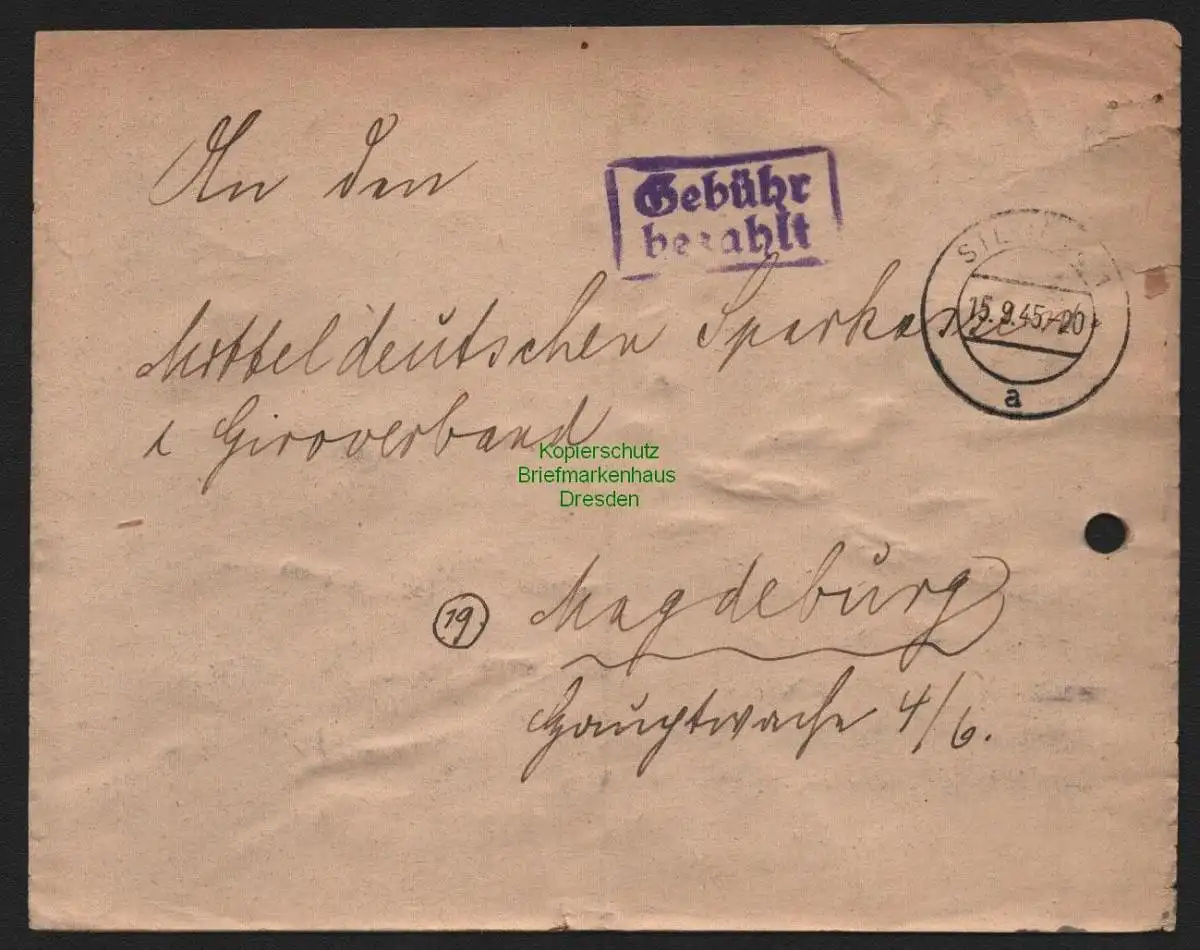 An den
Gebühr
bezahlt
15.9.45.-20
a
Mitteldeutschen Sparkassen
& Giroverband
Kopierschutz
Briefmarkenhaus
Dresden
19 Magdeburg
Hauptwache 4/6.